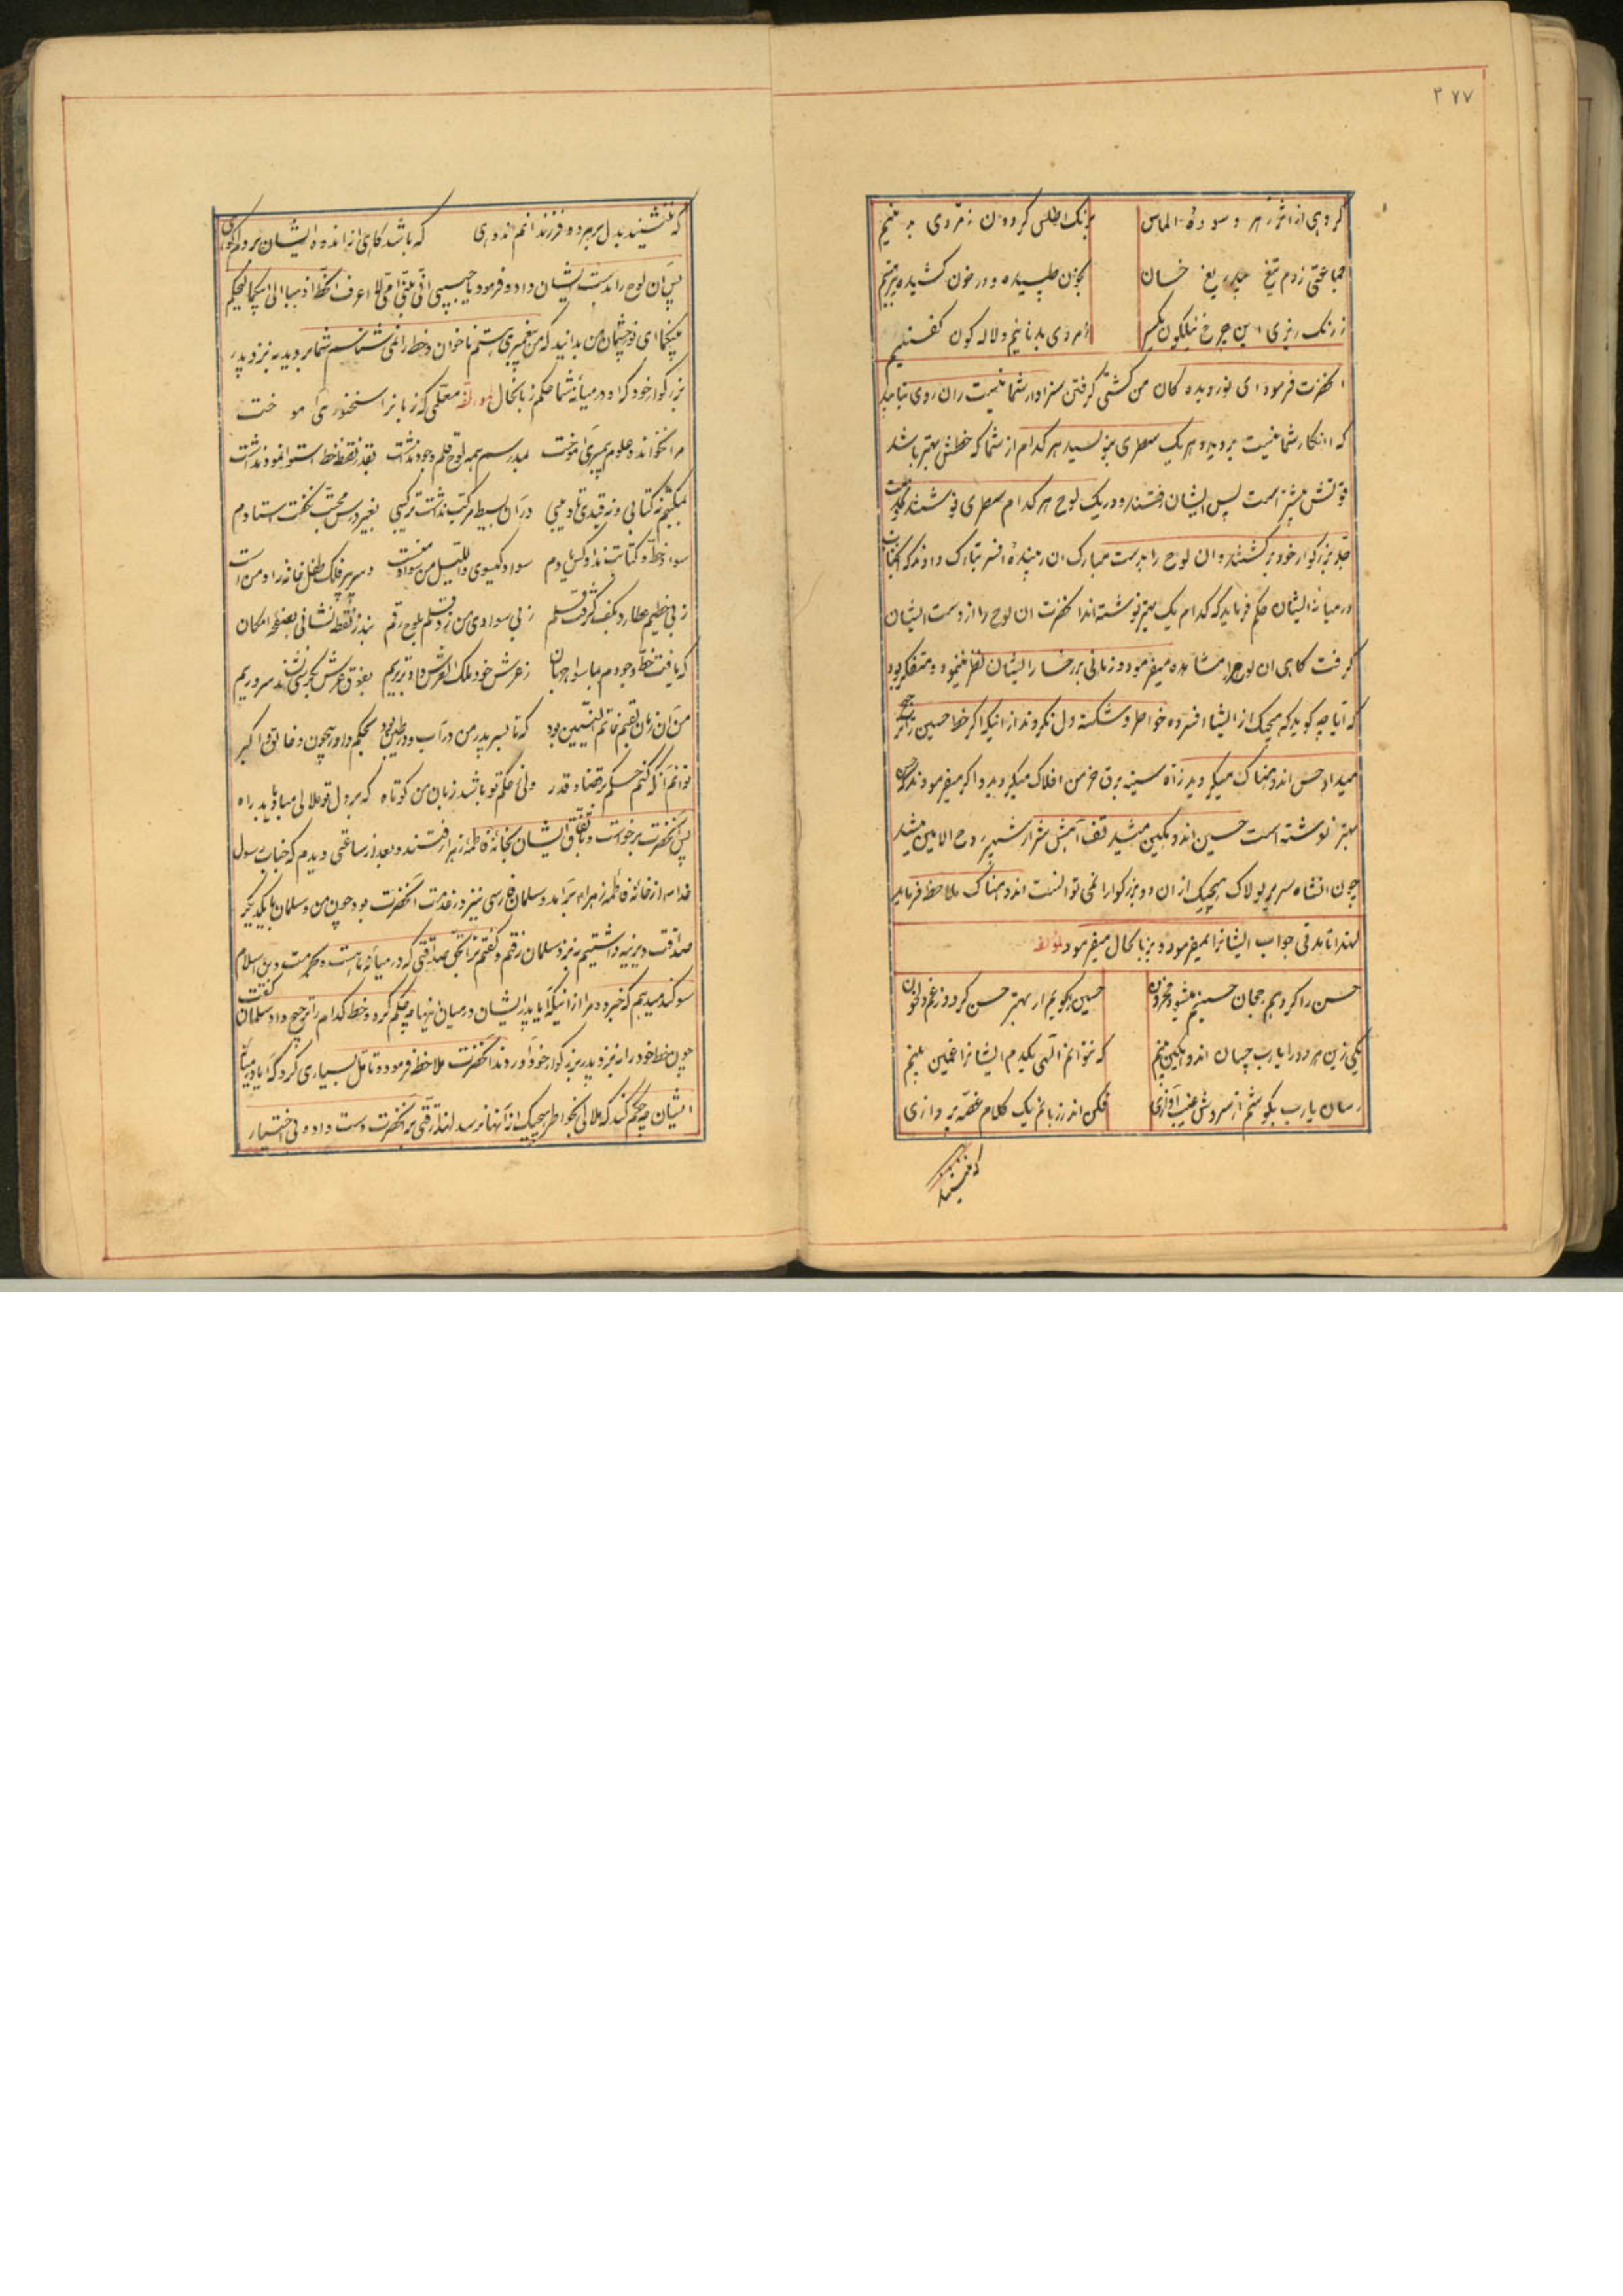 ۲۷۷
گروهی از اثر زهر و سوده الماس برنک اطلس کردون زمردی به بینیم
جماعتی زدم تیغ بیدریغ خسان بخون طپیده و در خون کشیده
ز رنک ریزی این چرخ نیلکون یکسر زمردی بدنانیم و لاله کون کفنیم
انحضرت فرمود ای نور دیده کان من کشتی کرفتن سزاوار شما نیست
که این کار شما نیست بروید و هر یک سطری بنویسید هر کدام از شما که خطش بهتر باشد
قوتش بیشتر است پس ایشان رفتند و در یک لوح هر کدام سطری نوشتند
جد بزرکوار خود برکشتند و ان لوح را بدست مبارک ان افسر تبارک دادند که انجناب
در میانه ایشان حکم فرماید که کدام یک بهتر نوشته اند انحضرت ان لوح را از دست ایشان
کرفت کاهی ان لوح را مشاهده میفرمود و زمانی بر رخسار ایشان نظر مینمود و متفکر بود
که ایا چه کوید که هیچیک از ایشان افسرده خواطر و شکسته دل نکردند از اینکه اکر خط حسین را ترجیح
میداد حسن اندوهناک میکردید و از آه سینه برق خرمن افلاک میکردید و اکر میفرمودند که حسن
بهتر نوشته است حسین اندوهکین میشد تف آهش شرار شهپر روح الامین میشد
چون انشاه سریر لولاک هیچیک از ان دو بزرکوار را نمی توانست اندوهناک ملاحظه فرماید
لهذا تا مدتی جواب ایشانرا نمیفرمود و بزبانحال میفرمود لمؤلفه
حسن را کر دهم رجحان حسینم میشود محزون حسین را کویم ار بهتر حسن کردد ز غم دلخون
یکی زین هر دو را یارب چسان اندوهکین بینم که نتوانم الهی یکدم ایشانرا غمین بینم
رسان یارب بکوشم از سروش غیب آوازی فکن اندر زبانم یک کلام غصه پردازی
که ننشیند
که ننشیند بدل بر هر دو فرزندانم اندوهی که باشد کاهی از اندوه ایشان بر دلم کوهی
پس آن لوح را بدست ایشان داد و فرمود یا حبیبی انی نبی امی لا اعرف الخط اذهبا الی ابیکما لیحکم
بینکما ای نور چشمان من بدانید که من پیغمبری هستم ناخوان و خط را نمی شناسم شما بروید به نزد پدر
بزرکوار خود که او در میانه شما حکم زبانحال لمؤلفه معلمی که زبانرا سخنوری آموخت
مرا نخواند و علوم پیمبری آموخت بمدرسم همه لوح و قلم وجود نداشت بقدر نقطه خط استوا نمود نداشت
بمکتبم نه کتابی و نه قید تادیبی در آن بسیط مرکب نداشت ترکیبی بغیر درس محبت نکفت استادم
سواد خط و کتابت نداد کس یادم سواد کیسوی واللیل من سواد منست دبیر پیر فلک طفل خانه زاد من است
ز بی خطیم عطارد بکف کرفت قلم ز بی سوادی من زد قلم بلوح رقم نبد ز نقطه نشانی بصفحه امکان
که یافت خط وجودم لباسوا جهان ز عرش خود بملک العرش داد تزییم بفوق عرش نشد سروریم
من آن زمان خاتم النبیین بود که تا بسر پدر من در آب و در طین بود بحکم داور بیچون و خالق اکبر
توانم آنکه کنم حکم بر قضا و قدر ولی حکم تو باشد زبان من کوتاه که بر دل تو ملالی مباد یابد راه
پس انحضرت برخواست و باتفاق ایشان بخانه فاطمه زهرا رفتند و بعد از ساعتی دیدم که جناب رسول
خدا ص از خانه فاطمه زهرا برآمد و سلمان فارسی نیز در خدمت انحضرت بود چون من و سلمان با یکدیکر
صداقت دیرینه داشتیم به نزد سلمان رفتم و کفتم ترا بحق صداقتی که در میانه ما است و بحرمت دین اسلام
سوکند میدهم که خبر ده مرا از اینکه ایا پدر ایشان در میان اینها چه حکم کرد و خط کدام را ترجیح داد سلمان کفت
چون خط خود را به نزد پدر بزرکوار خود آوردند انحضرت ملاحظه فرموده و تامل بسیاری کرد که ایا در میانه
ایشان چه حکم کند که ملالی بخواطر هیچیک از آنها نرسد لهذا رقتی بر انحضرت دست داد و بی اختیار